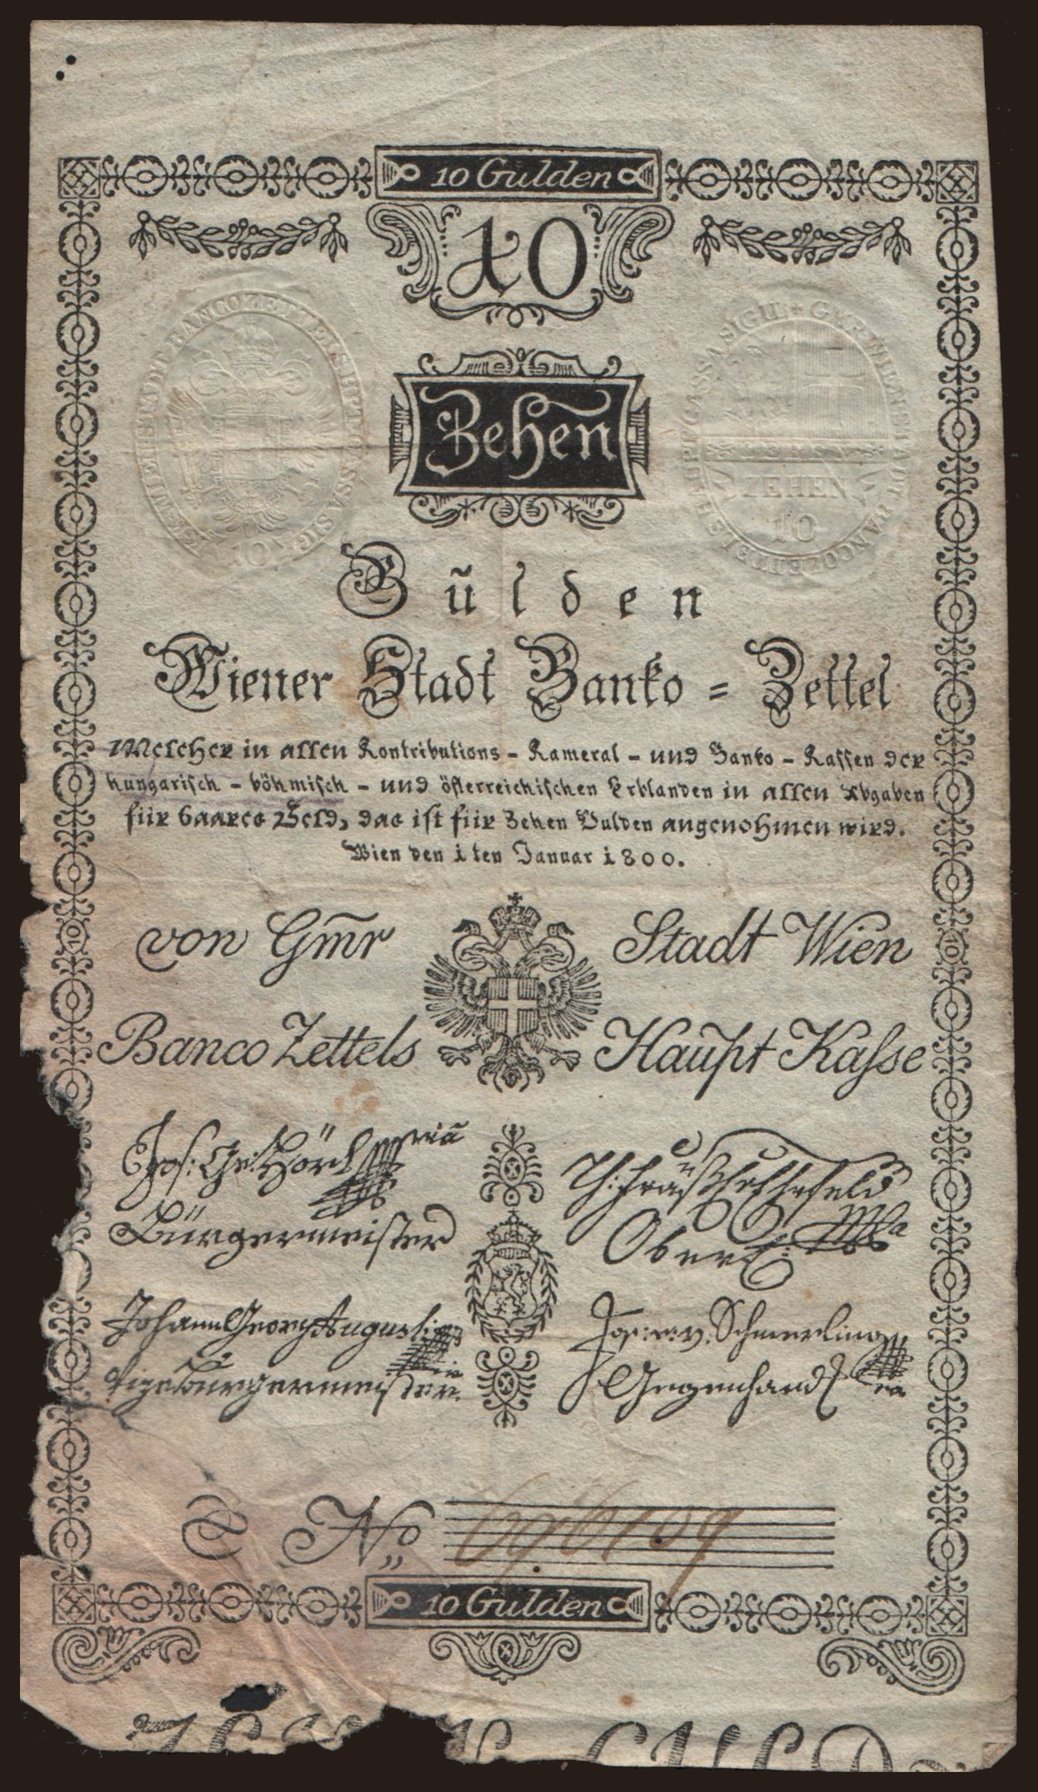 10 Gulden
10
Zehen
Gūlden
Wiener Stadt Banko = Zettel
Welcher in allen Kontributions - Kameral - und Banko - Kassen der
hungarisch - böhmisch - und österreichischen Erblanden in allen Abgaben
für baares Geld, das ist für Zehen Gulden angenohmen wird.
Wien den 1ten Januar 1800.
von Gm̄r Stadt Wien
Banco Zettels Haupt Kasse
Bürgermeister
Johann Georg Augusti
Vizebürgermeister
Jos: v: Schmerling
ZEHEN
10
No 696109
10 Gulden